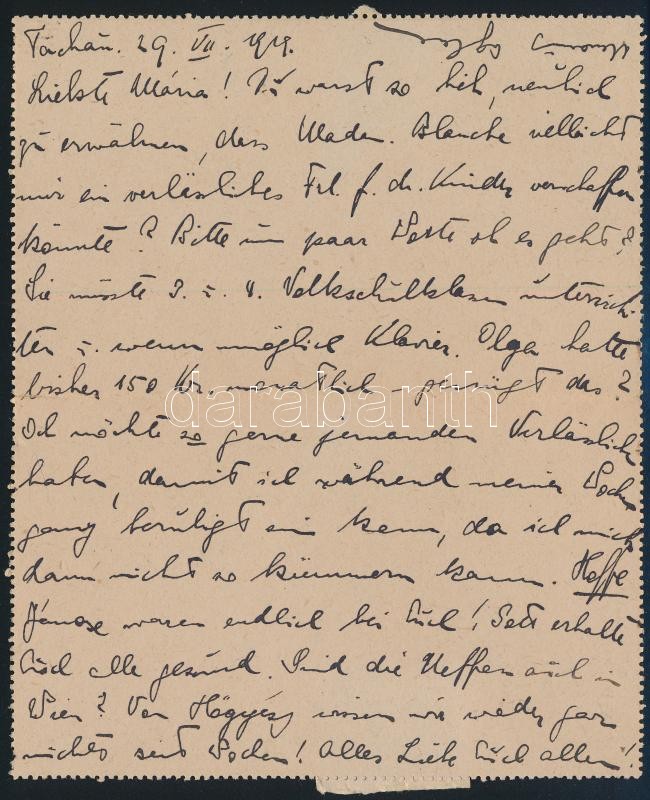 29. VII. 1919.
Liebste Mária! Du warst so lieb, neulich
zu erwähnen, dass Madam. Blanche velleicht
mir ein verlässliches Frl. f. d. Kinder verschaffen
könnte? Bitte um paar Worte ob es geht?
Sie müsste 3. u. 4. Volksschulklassen unterrich-
ten u. wenn möglich Klavier. Olga hatte
bisher 150 Kr. monatlich – genügt das?
Ich möchte so gerne jemanden Verlässlichen
haben, damit ich während meiner
beruhigt sein kann, da ich mich
dann nicht so kümmern kann. Hoffe
waren endlich bei Euch! Gott erhalte
Euch alle gesund. Sind die Neffen auch in
Wien? Von Högyész wissen wir wieder gar
nichts seit Wochen! Alles Liebe Euch allen!
darabanth